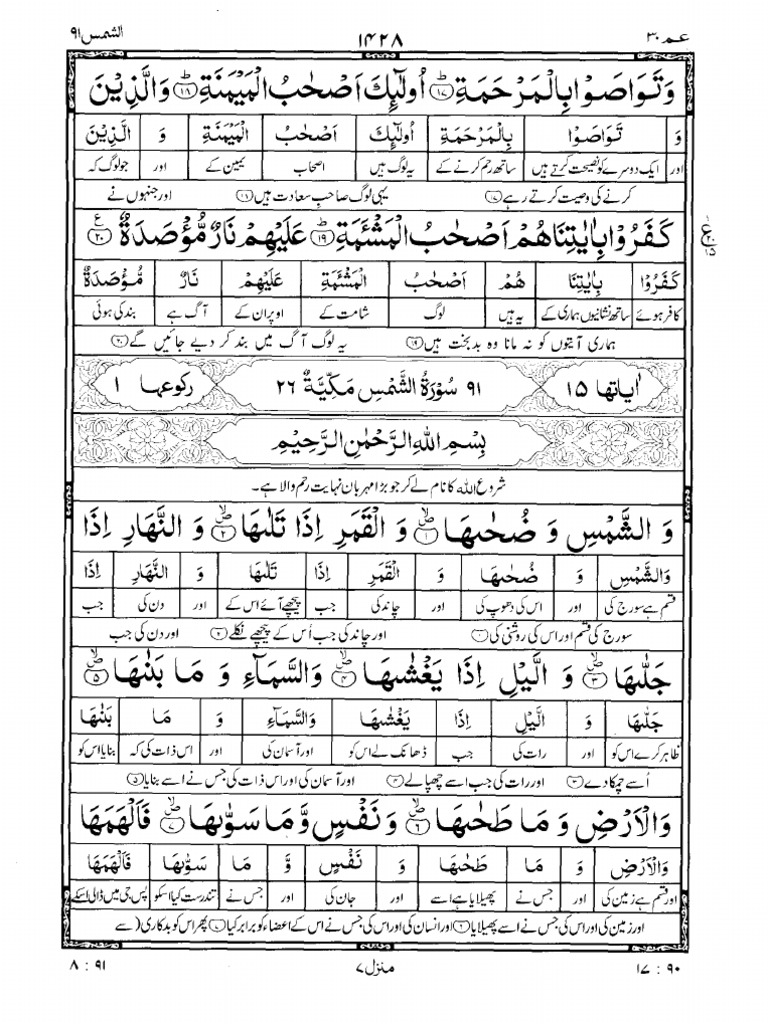 عم ۳۰ ۱۴۲۸ الشمس ۹۱
وَتَوَاصَوْا بِالْمَرْحَمَةِ ﴿۱۷﴾ اُولٰٓئِكَ اَصْحٰبُ الْمَيْمَنَةِ ﴿۱۸﴾ وَالَّذِيْنَ
وَ تَوَاصَوْا بِالْمَرْحَمَةِ اُولٰٓئِكَ اَصْحٰبُ الْمَيْمَنَةِ وَ الَّذِيْنَ
اور ایک دوسرے کو نصیحت کرتے ہیں ساتھ رحم کرنے کے یہ لوگ ہیں اصحاب یمین کے اور جو لوگ کہ
کرنے کی وصیت کرتے رہے ﴿۱۷﴾ یہی لوگ صاحبِ سعادت ہیں ﴿۱۸﴾ اور جنہوں نے
كَفَرُوْا بِاٰيٰتِنَا هُمْ اَصْحٰبُ الْمَشْـَٔمَةِ ﴿۱۹﴾ عَلَيْهِمْ نَارٌ مُّؤْصَدَةٌ ﴿۲۰﴾
ع ۲۰ ۱۵
كَفَرُوْا بِاٰيٰتِنَا هُمْ اَصْحٰبُ الْمَشْـَٔمَةِ عَلَيْهِمْ نَارٌ مُّؤْصَدَةٌ
کافر ہوئے ساتھ نشانیوں ہماری کے یہ ہیں لوگ شامت کے اوپر ان کے آگ ہے بند کی ہوئی
ہماری آیتوں کو نہ مانا وہ بدبخت ہیں ﴿۱۹﴾ یہ لوگ آگ میں بند کر دیے جائیں گے ﴿۲۰﴾
اٰیاتها ۱۵ ۹۱ سُوْرَةُ الشَّمْسِ مَكِّيَّةٌ ۲۶ رکوعها ۱
بِسْمِ اللهِ الرَّحْمٰنِ الرَّحِيْمِ
شروع اللہ کا نام لے کر جو بڑا مہربان نہایت رحم والا ہے۔
وَ الشَّمْسِ وَ ضُحٰىهَا ﴿۱﴾ وَ الْقَمَرِ اِذَا تَلٰىهَا ﴿۲﴾ وَ النَّهَارِ اِذَا
وَالشَّمْسِ وَ ضُحٰىهَا وَ الْقَمَرِ اِذَا تَلٰىهَا وَ النَّهَارِ اِذَا
قسم ہے سورج کی اور اس کی دھوپ کی اور چاند کی جب پیچھے آئے اس کے اور دن کی جب
سورج کی قسم اور اس کی روشنی کی ﴿۱﴾ اور چاند کی جب اُس کے پیچھے نکلے ﴿۲﴾ اور دن کی جب
جَلّٰىهَا ﴿۳﴾ وَ الَّيْلِ اِذَا يَغْشٰىهَا ﴿۴﴾ وَالسَّمَآءِ وَ مَا بَنٰىهَا ﴿۵﴾
جَلّٰىهَا وَ الَّيْلِ اِذَا يَغْشٰىهَا وَالسَّمَآءِ وَ مَا بَنٰىهَا
ظاہر کرے اس کو اور رات کی جب ڈھانک لے اس کو اور آسمان کی اور اس ذات کی کہ بنایا اس کو
اُسے چمکا دے ﴿۳﴾ اور رات کی جب اسے چھپا لے ﴿۴﴾ اور آسمان کی اور اس ذات کی جس نے اسے بنایا ﴿۵﴾
وَالْاَرْضِ وَ مَا طَحٰىهَا ﴿۶﴾ وَ نَفْسٍ وَّ مَا سَوّٰىهَا ﴿۷﴾ فَاَلْهَمَهَا
وَالْاَرْضِ وَ مَا طَحٰىهَا وَ نَفْسٍ وَّ مَا سَوّٰىهَا فَاَلْهَمَهَا
اور قسم ہے زمین کی اور جس نے پھیلایا ہے اسے اور جان کی اور جس نے تندرست کیا اسکو پس جی میں ڈالی اسکے
اور زمین کی اور اس کی جس نے اسے پھیلایا ﴿۶﴾ اور انسان کی اور اس کی جس نے اس کے اعضاء کو برابر کیا ﴿۷﴾ پھر اس کو بدکاری (سے
۱۷ : ۹۰ منزل ۷ ۸ : ۹۱